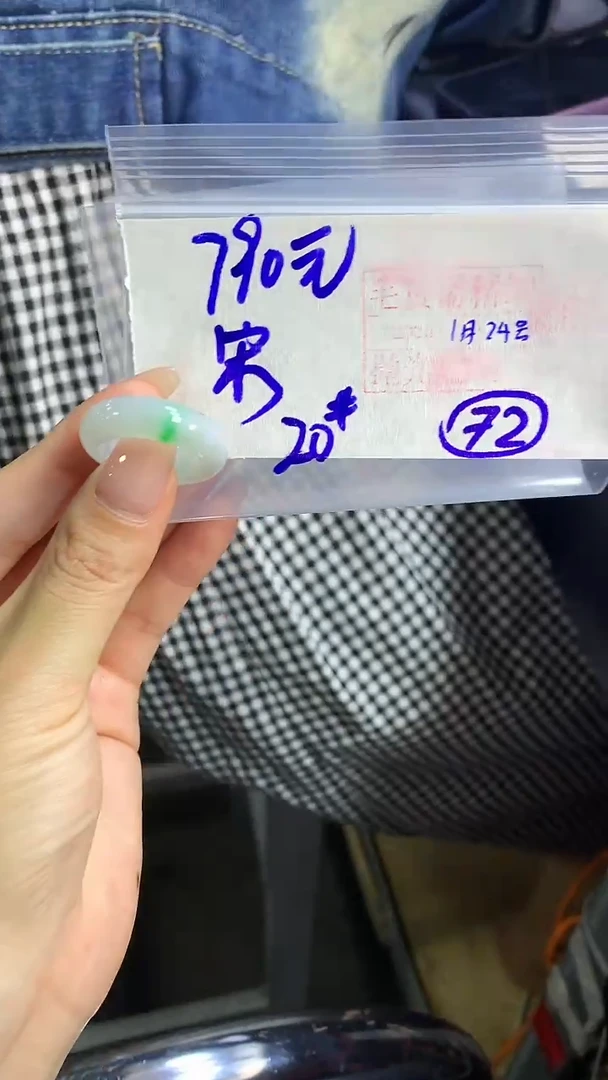 790元
1月24号
宋
20#
72